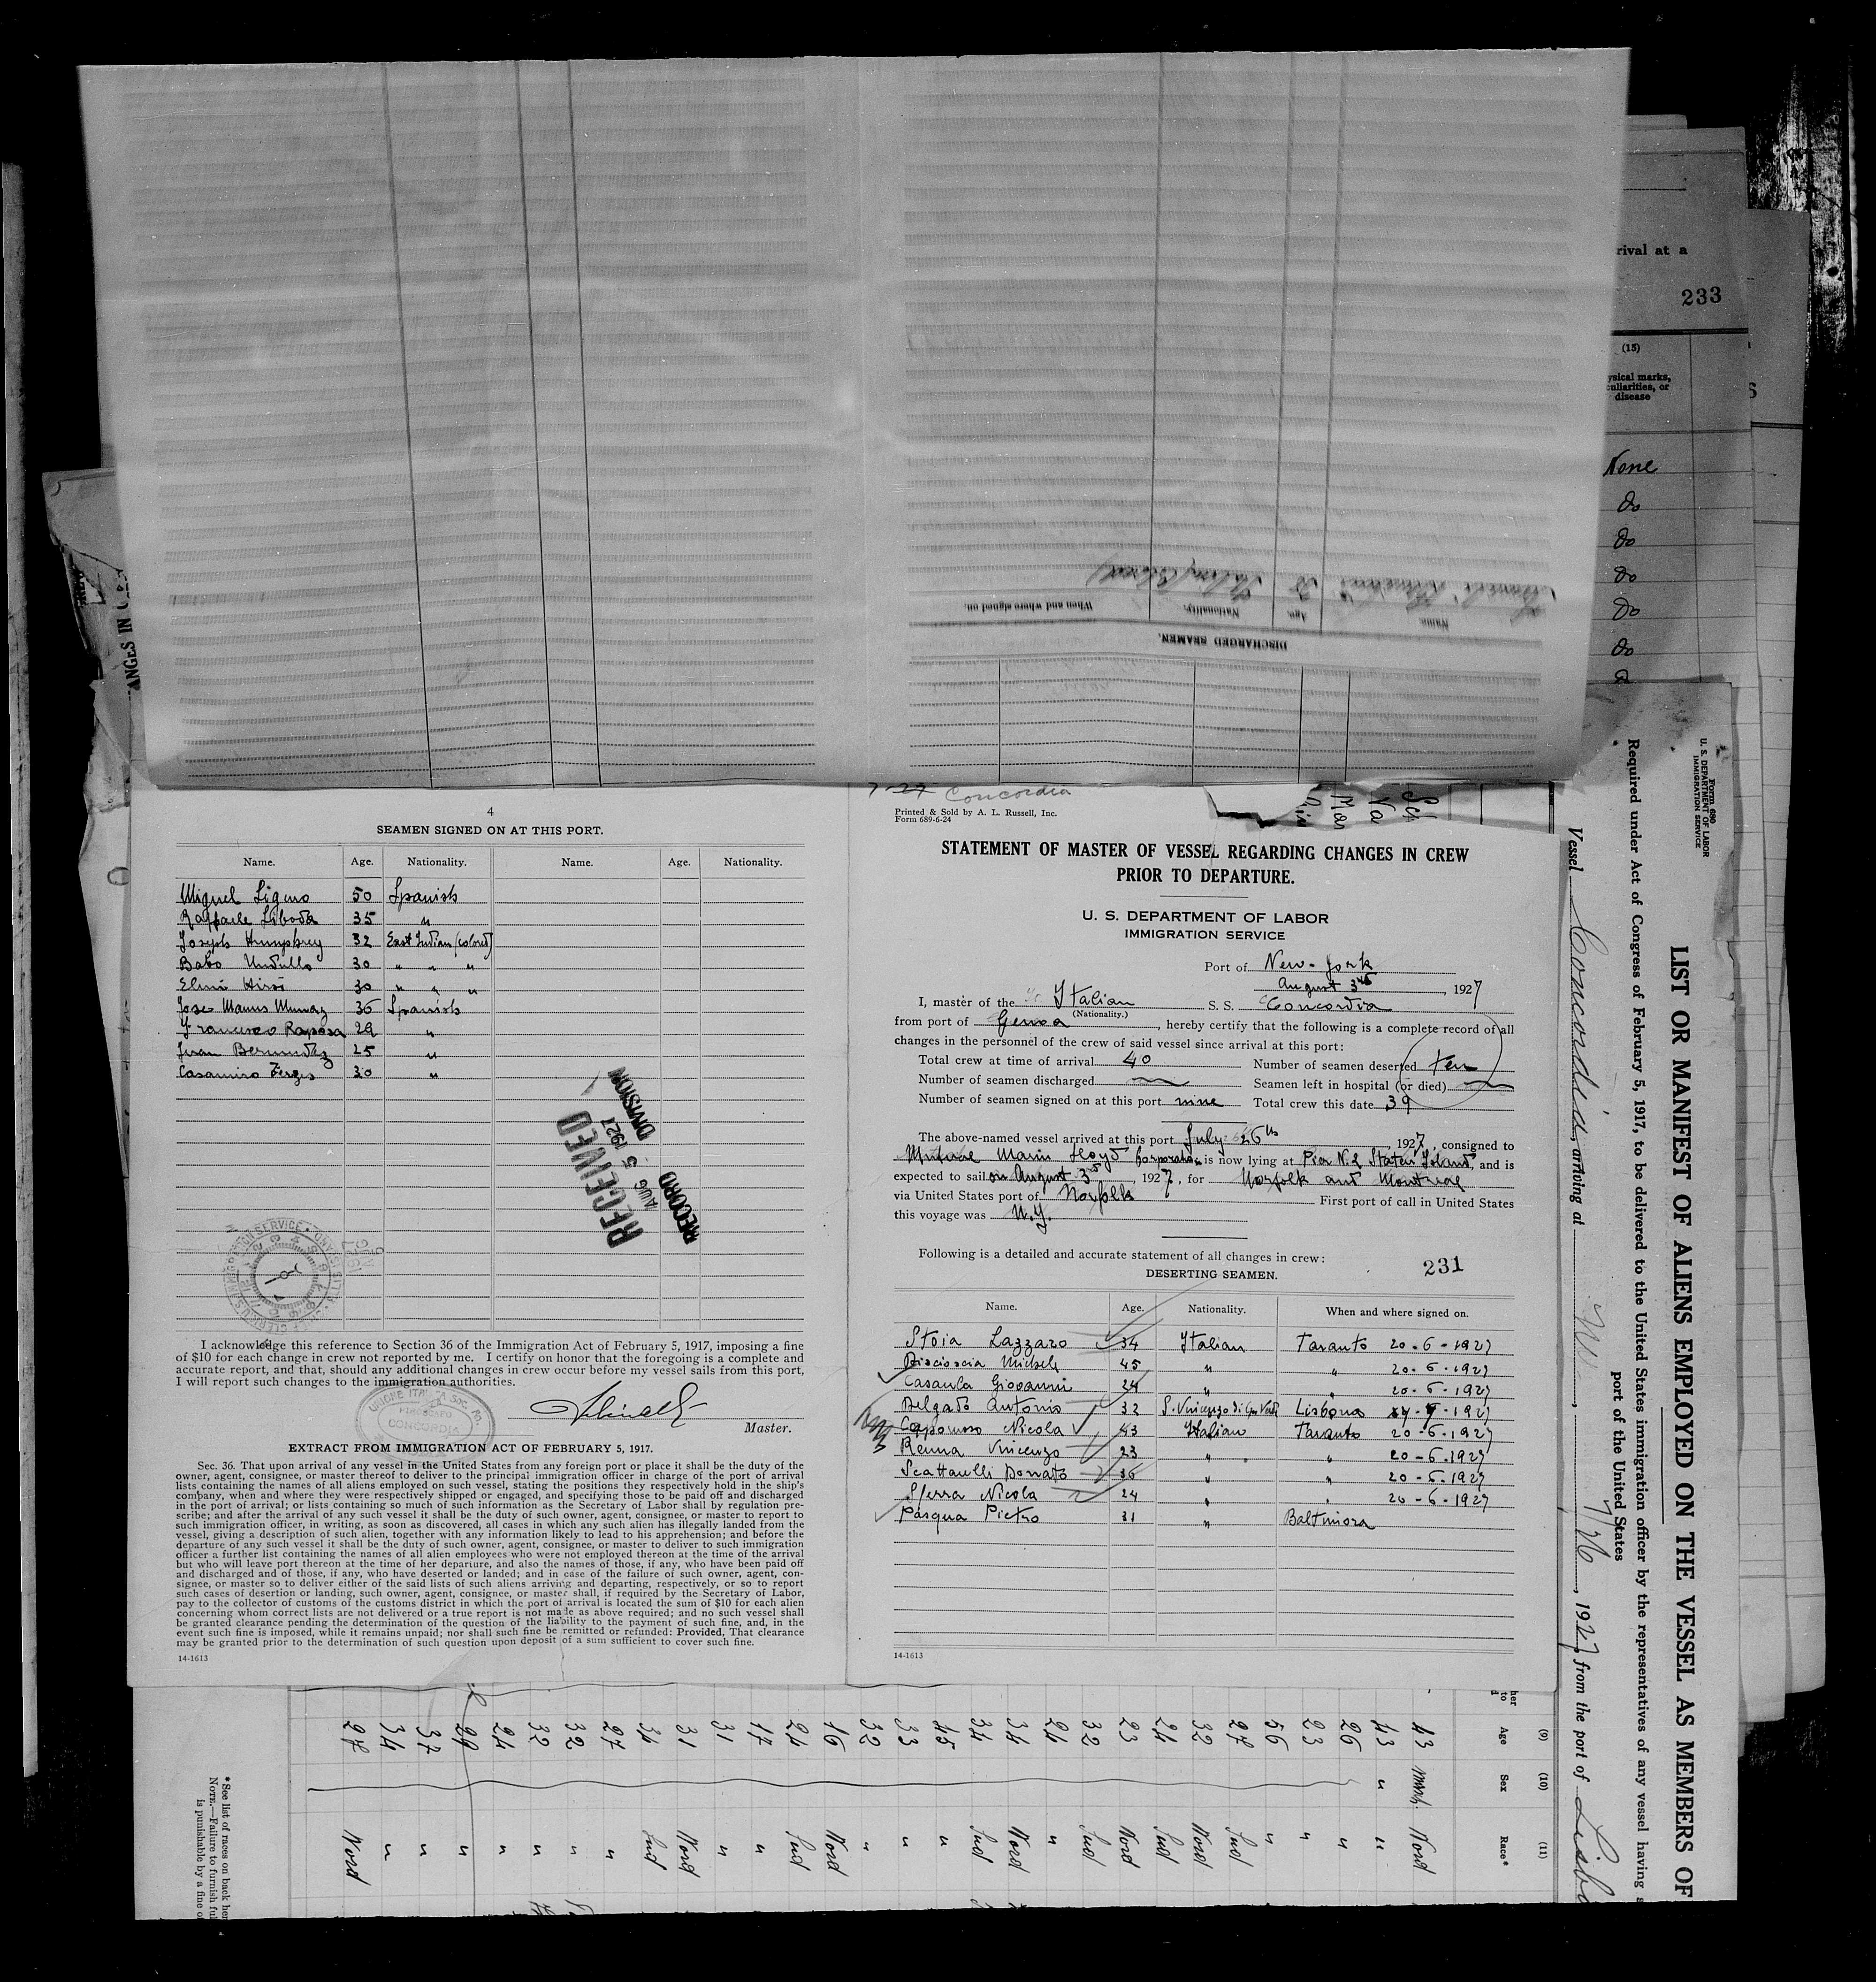 4
SEAMEN SIGNED ON AT THIS PORT.
Name. Age. Nationality. Name. Age. Nationality.
Miguel Ligmo 50 Spanish
Raffaele Liboda 35 "
Joseph Humphrey 32 East Indian (colored)
Babo 30 " " "
Elmi Hirsi 30 " " "
Jose Manus Munaz 36 Spanish
Francesco Raposa 29 "
Juan Bermudez 25 "
Casamiro 30 "
RECEIVED
AUG 5 1927
RECORD DIVISION
I acknowledge this reference to Section 36 of the Immigration Act of February 5, 1917, imposing a fine
of $10 for each change in crew not reported by me. I certify on honor that the foregoing is a complete and
accurate report, and that, should any additional changes in crew occur before my vessel sails from this port,
I will report such changes to the immigration authorities.
CONCORDIA
Master.
EXTRACT FROM IMMIGRATION ACT OF FEBRUARY 5, 1917.
Sec. 36. That upon arrival of any vessel in the United States from any foreign port or place it shall be the duty of the
owner, agent, consignee, or master thereof to deliver to the principal immigration officer in charge of the port of arrival
lists containing the names of all aliens employed on such vessel, stating the positions they respectively hold in the ship's
company, when and where they were respectively shipped or engaged, and specifying those to be paid off and discharged
in the port of arrival; or lists containing so much of such information as the Secretary of Labor shall by regulation pre-
scribe; and after the arrival of any such vessel it shall be the duty of such owner, agent, consignee, or master to report to
such immigration officer, in writing, as soon as discovered, all cases in which any such alien has illegally landed from the
vessel, giving a description of such alien, together with any information likely to lead to his apprehension; and before the
departure of any such vessel it shall be the duty of such owner, agent, consignee, or master to deliver to such immigration
officer a further list containing the names of all alien employees who were not employed thereon at the time of the arrival
but who will leave port thereon at the time of her departure, and also the names of those, if any, who have been paid off
and discharged and of those, if any, who have deserted or landed; and in case of the failure of such owner, agent, con-
signee, or master so to deliver either of the said lists of such aliens arriving and departing, respectively, or so to report
such cases of desertion or landing, such owner, agent, consignee, or master shall, if required by the Secretary of Labor,
pay to the collector of customs of the customs district in which the port of arrival is located the sum of $10 for each alien
concerning whom correct lists are not delivered or a true report is not made as above required; and no such vessel shall
be granted clearance pending the determination of the question of the liability to the payment of such fine, and, in the
event such fine is imposed, while it remains unpaid; nor shall such fine be remitted or refunded: Provided, That clearance
may be granted prior to the determination of such question upon deposit of a sum sufficient to cover such fine.
14-1613
Concordia
Printed & Sold by A. L. Russell, Inc.
Form 689-6-24
STATEMENT OF MASTER OF VESSEL REGARDING CHANGES IN CREW
PRIOR TO DEPARTURE.
U. S. DEPARTMENT OF LABOR
IMMIGRATION SERVICE
Port of New-York
August 3rd, 1927
I, master of the Italian S. S. Concordia
(Nationality.)
from port of Genoa, hereby certify that the following is a complete record of all
changes in the personnel of the crew of said vessel since arrival at this port:
Total crew at time of arrival 40 Number of seamen deserted ten
Number of seamen discharged Seamen left in hospital (or died)
Number of seamen signed on at this port nine Total crew this date 39
The above-named vessel arrived at this port July 26th, 1927, consigned to
Lloyd Corporation is now lying at Pier N.2 Staten Island, and is
expected to sail on August 3rd, 1927, for Norfolk and Montreal
via United States port of Norfolk First port of call in United States
this voyage was N.Y.
Following is a detailed and accurate statement of all changes in crew:
231
DESERTING SEAMEN.
Name. Age. Nationality. When and where signed on.
Stoia Lazzaro 34 Italian Taranto 20-6-1927
Biscioscia Michele 45 " " 20-6-1927
Casaula Giovanni 24 " " 20-6-1927
Delgado Antonio 32 Lisbona 1927
Capponso Nicola 43 Italian Taranto 20-6-1927
Renna Vincenzo 23 " " 20-6-1927
Scattarelli Donato 36 " " 20-6-1927
Sferra Nicola 24 " " 20-6-1927
Pasqua Pietro 31 " Baltimora
14-1613
DISCHARGED SEAMEN.
Name. Age. Nationality. When and where signed on.
ANGES IN
rival at a
233
(15)
ysical marks,
culiarities, or
disease
None
do
do
do
do
do
Form 680
U. S. DEPARTMENT OF LABOR
IMMIGRATION SERVICE
LIST OR MANIFEST OF ALIENS EMPLOYED ON THE VESSEL AS MEMBERS OF
Required under Act of Congress of February 5, 1917, to be delivered to the United States immigration officer by the representatives of any vessel having
port of the United States
Vessel Concordia, arriving at 7/26, 1927, from the port of Lisbo
(9) (10) (11)
Age Sex Race*
43 Nord
43 " "
26 "
23 "
56 "
27 Ind
32 Nord
24 Ind
23 Nord
32 Ind
24 "
34 Nord
34 Ind
45 "
33 "
32 "
16 Nord
24 Ind
17 "
31 "
31 Nord
34 Ind
27 "
32 "
32 "
24 "
29 "
37 "
34 "
28 Nord
*See list of races on back her
NOTE.—Failure to furnish ful
is punishable by a fine o